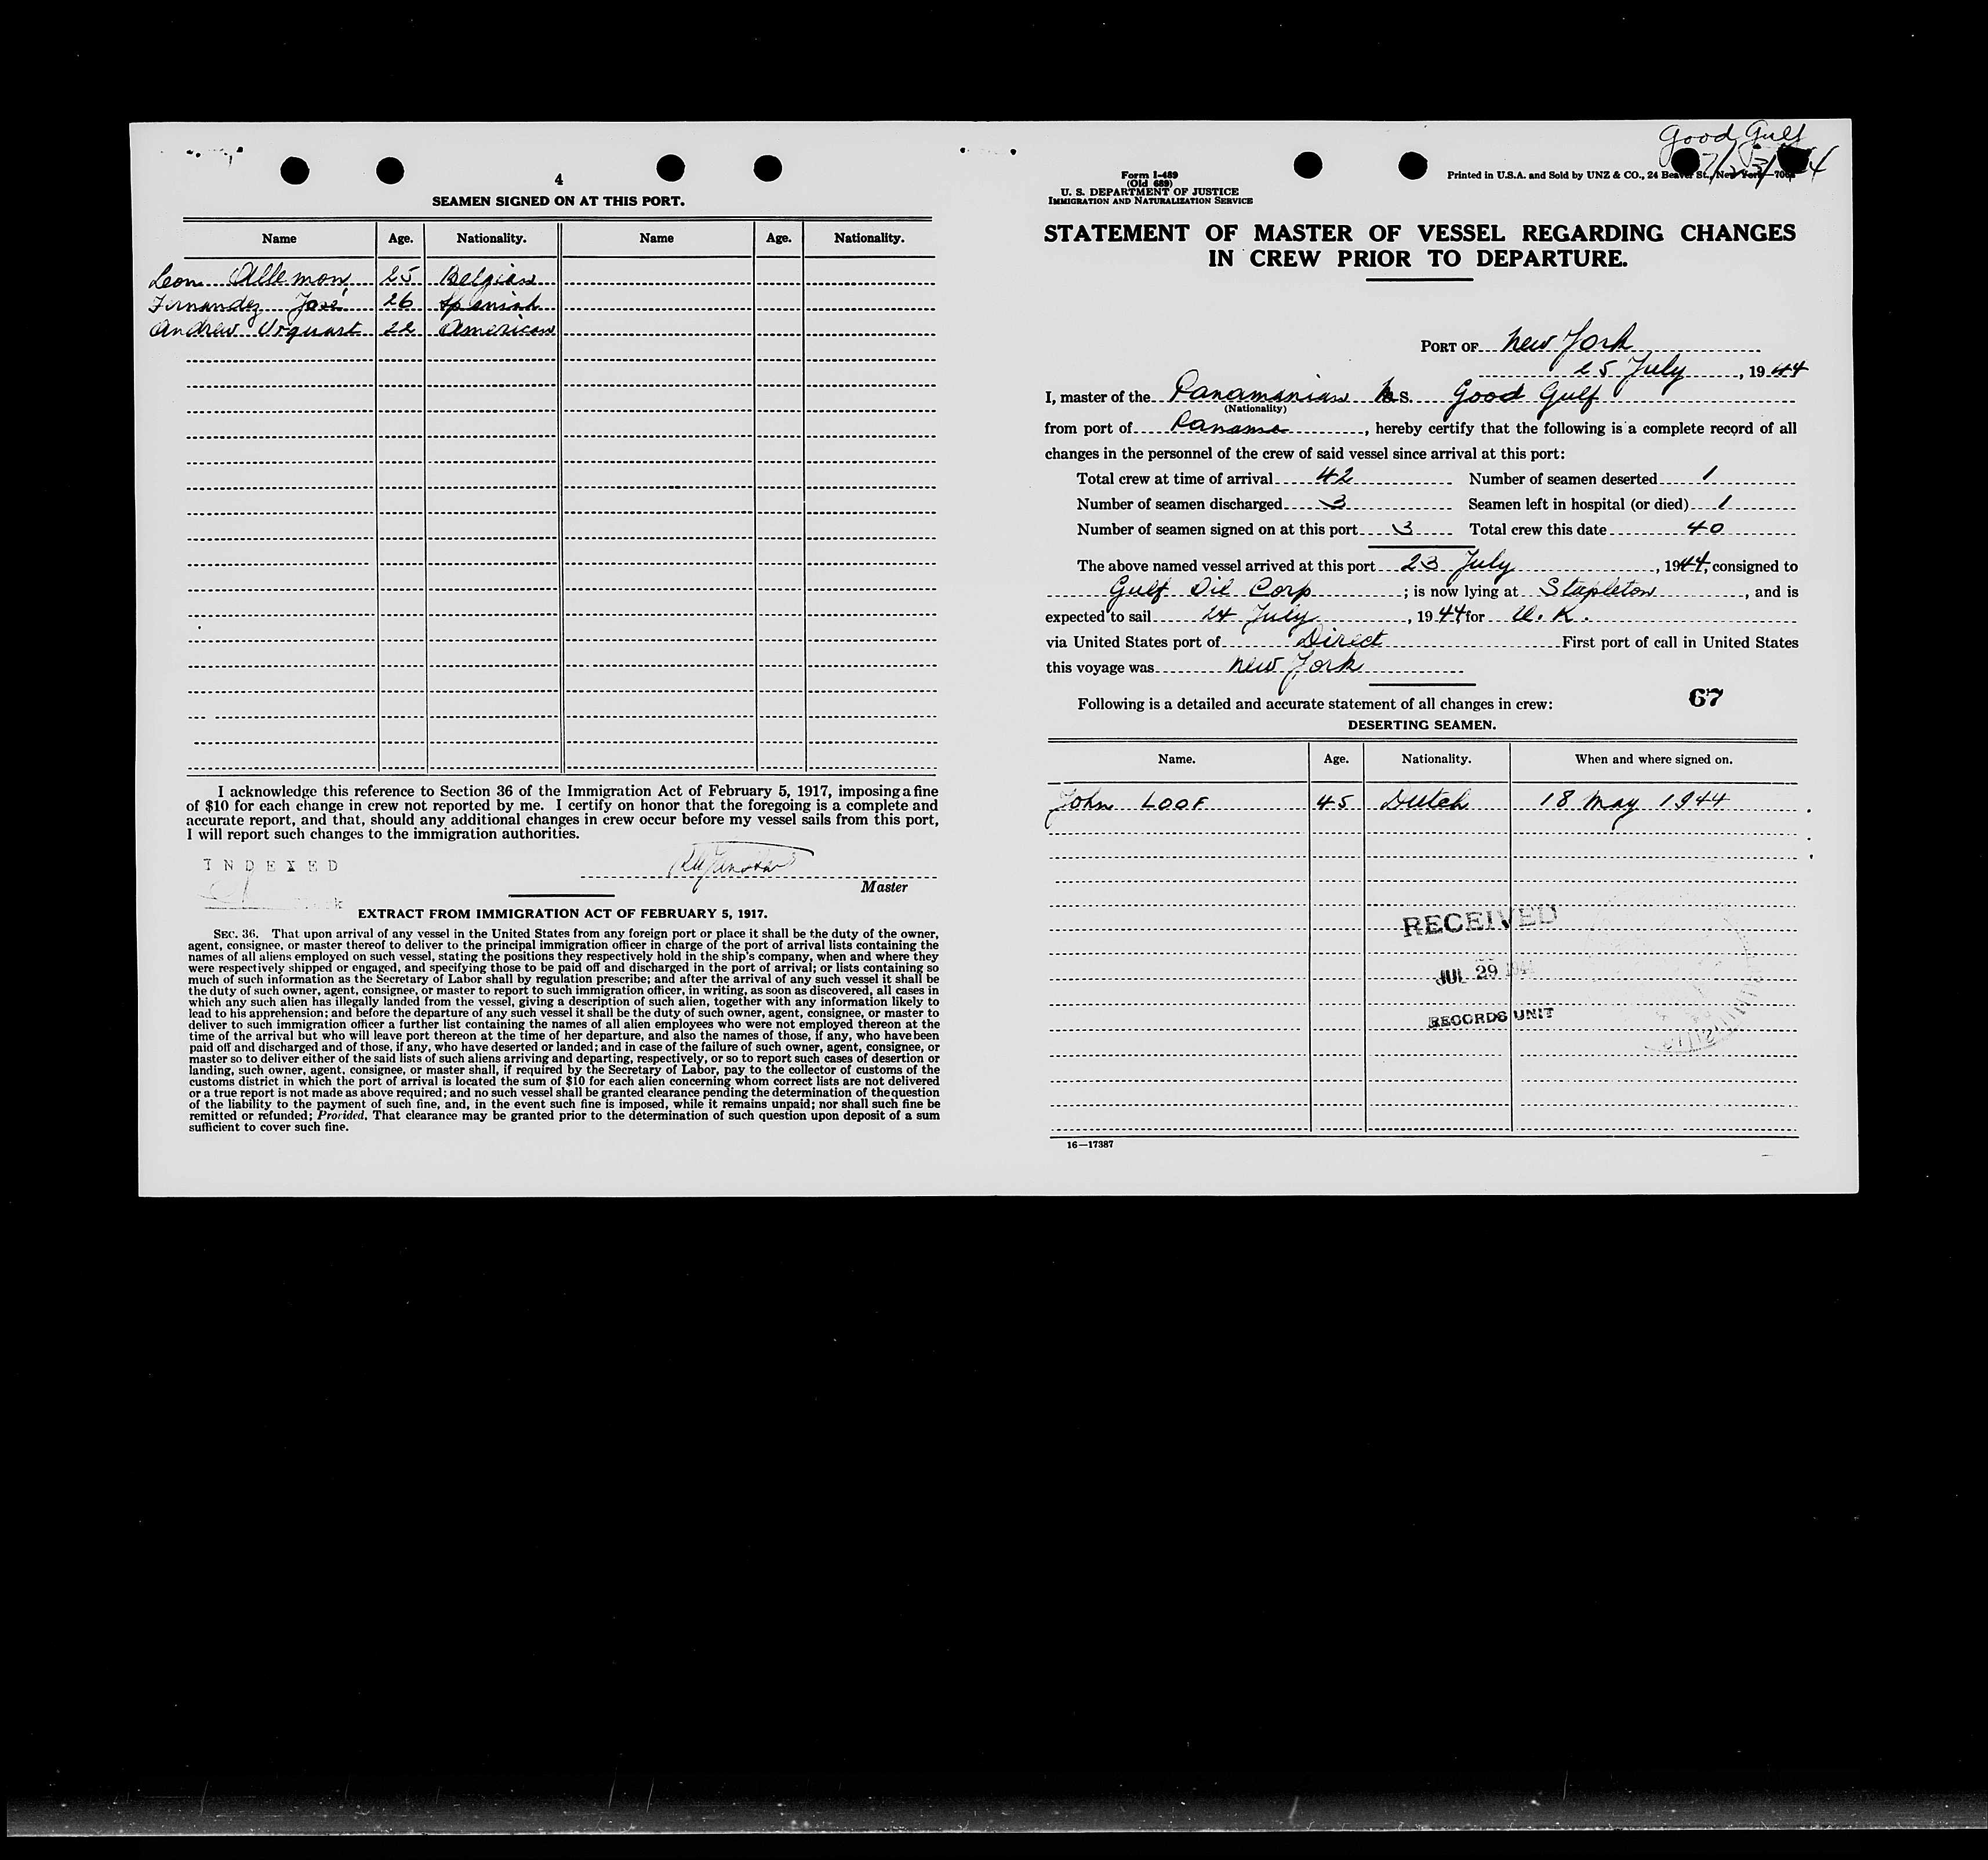 4
SEAMEN SIGNED ON AT THIS PORT.
Name Age. Nationality. Name Age. Nationality.
Leon Allemon 25 Belgian
Fernandez José 26 Spanish
Andrew Urquart 22 American
I acknowledge this reference to Section 36 of the Immigration Act of February 5, 1917, imposing a fine
of $10 for each change in crew not reported by me. I certify on honor that the foregoing is a complete and
accurate report, and that, should any additional changes in crew occur before my vessel sails from this port,
I will report such changes to the immigration authorities.
INDEXED
Master
EXTRACT FROM IMMIGRATION ACT OF FEBRUARY 5, 1917.
SEC. 36. That upon arrival of any vessel in the United States from any foreign port or place it shall be the duty of the owner,
agent, consignee, or master thereof to deliver to the principal immigration officer in charge of the port of arrival lists containing the
names of all aliens employed on such vessel, stating the positions they respectively hold in the ship's company, when and where they
were respectively shipped or engaged, and specifying those to be paid off and discharged in the port of arrival; or lists containing so
much of such information as the Secretary of Labor shall by regulation prescribe; and after the arrival of any such vessel it shall be
the duty of such owner, agent, consignee, or master to report to such immigration officer, in writing, as soon as discovered, all cases in
which any such alien has illegally landed from the vessel, giving a description of such alien, together with any information likely to
lead to his apprehension; and before the departure of any such vessel it shall be the duty of such owner, agent, consignee, or master to
deliver to such immigration officer a further list containing the names of all alien employees who were not employed thereon at the
time of the arrival but who will leave port thereon at the time of her departure, and also the names of those, if any, who have been
paid off and discharged and of those, if any, who have deserted or landed; and in case of the failure of such owner, agent, consignee, or
master so to deliver either of the said lists of such aliens arriving and departing, respectively, or so to report such cases of desertion or
landing, such owner, agent, consignee, or master shall, if required by the Secretary of Labor, pay to the collector of customs of the
customs district in which the port of arrival is located the sum of $10 for each alien concerning whom correct lists are not delivered
or a true report is not made as above required; and no such vessel shall be granted clearance pending the determination of the question
of the liability to the payment of such fine, and, in the event such fine is imposed, while it remains unpaid; nor shall such fine be
remitted or refunded; Provided, That clearance may be granted prior to the determination of such question upon deposit of a sum
sufficient to cover such fine.
Good Gulf
7/23/44
Form I-489
(Old 689)
U. S. DEPARTMENT OF JUSTICE
IMMIGRATION AND NATURALIZATION SERVICE
Printed in U.S.A. and Sold by UNZ & CO., 24 Beaver St., New York
STATEMENT OF MASTER OF VESSEL REGARDING CHANGES
IN CREW PRIOR TO DEPARTURE.
PORT OF New York
25 July, 1944
I, master of the Panamanian M.S. Good Gulf
(Nationality)
from port of Panama, hereby certify that the following is a complete record of all
changes in the personnel of the crew of said vessel since arrival at this port:
Total crew at time of arrival 42 Number of seamen deserted 1
Number of seamen discharged 3 Seamen left in hospital (or died) 1
Number of seamen signed on at this port 3 Total crew this date 40
The above named vessel arrived at this port 23 July, 1944, consigned to
Gulf Oil Corp; is now lying at Stapleton, and is
expected to sail 24 July, 1944 for U.K.
via United States port of Direct First port of call in United States
this voyage was New York
Following is a detailed and accurate statement of all changes in crew: 67
DESERTING SEAMEN.
Name. Age. Nationality. When and where signed on.
John LOOF 45 Dutch 18 May 1944
RECEIVED
JUL 29 1944
RECORDS UNIT
16—17387